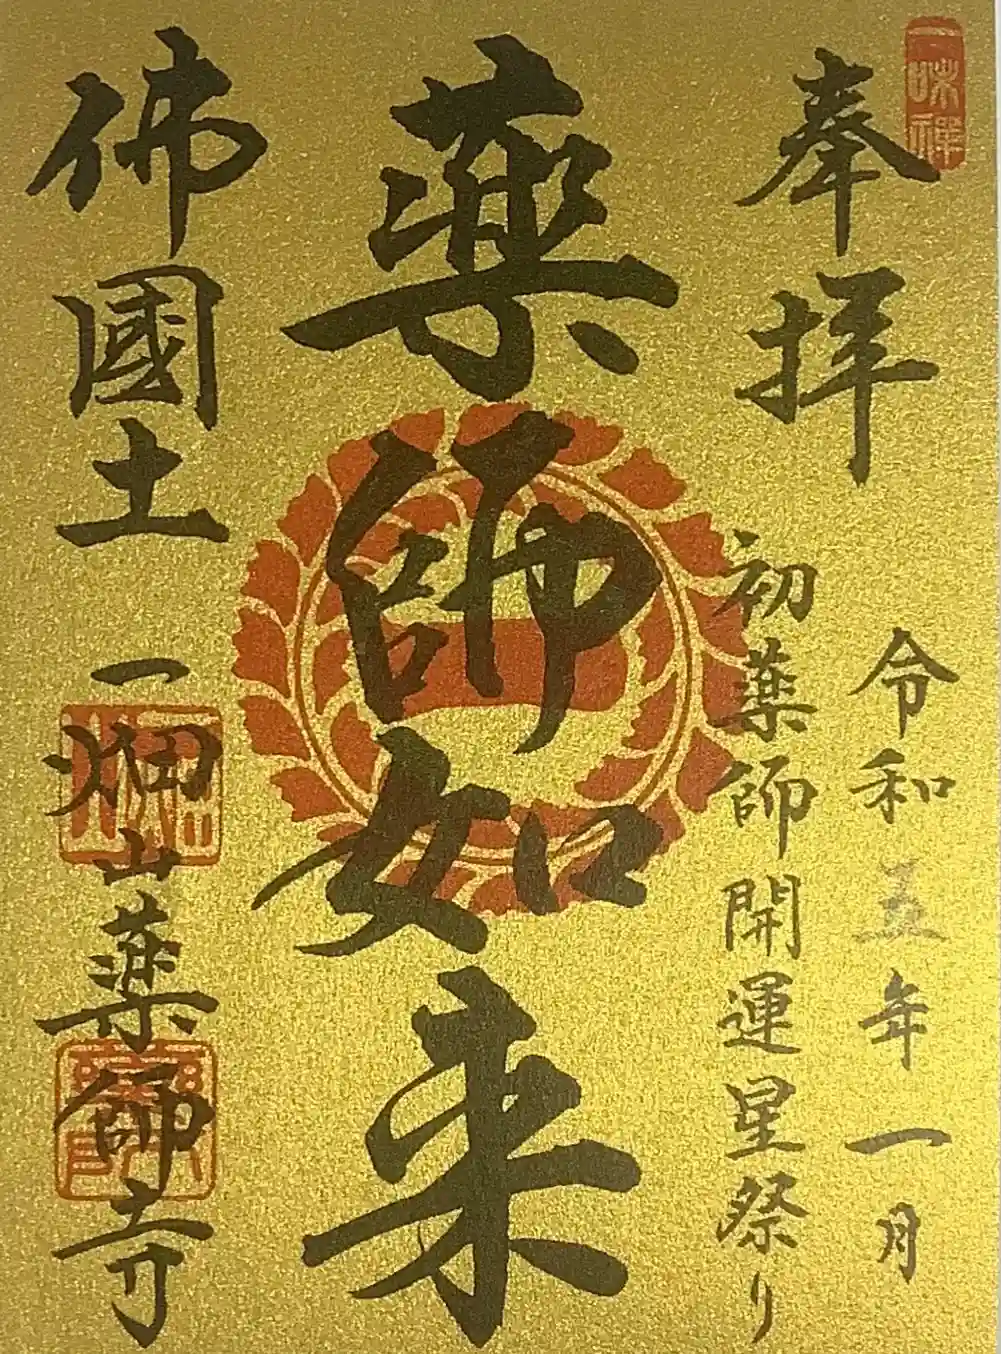 一味禪
奉拝
令和五年一月
初薬師開運星祭り
薬師如来
佛國土
一畑山薬師寺